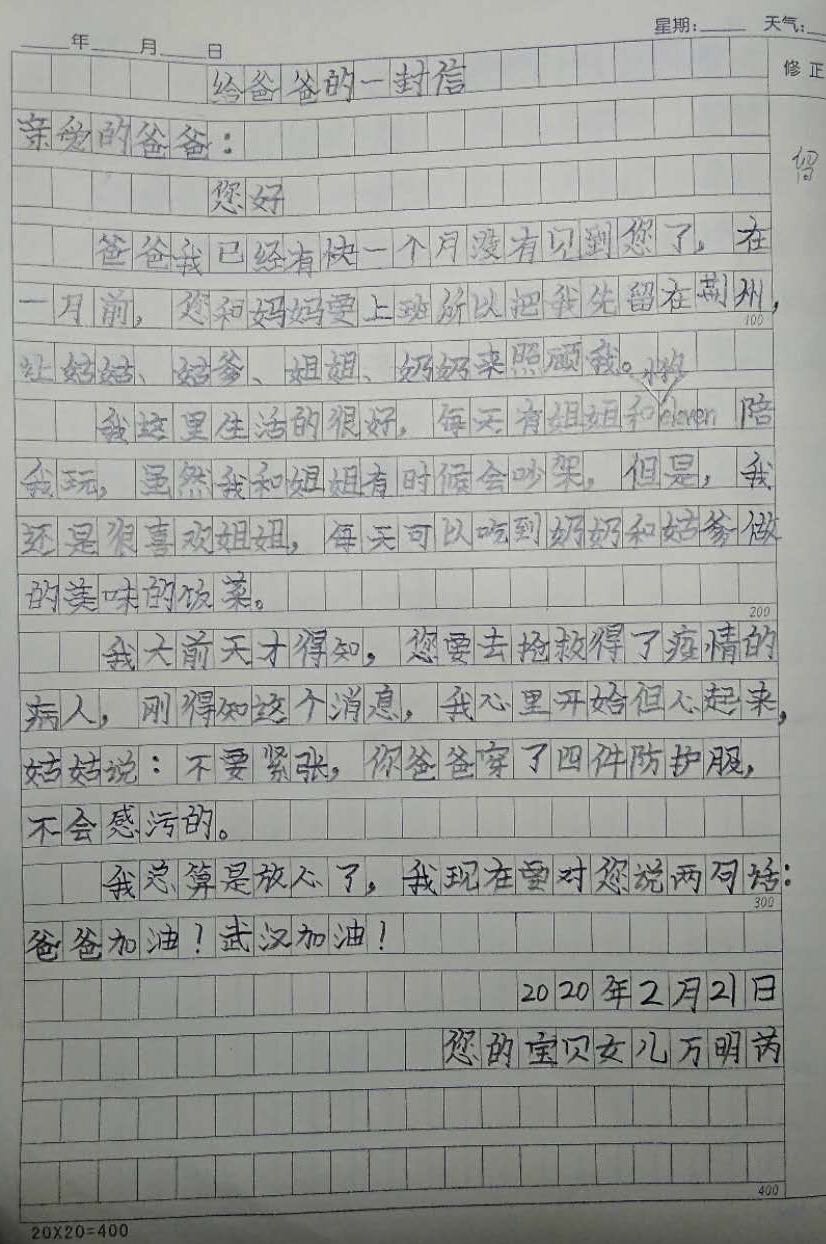 星期: 天气:
年 月 日
修正
给爸爸的一封信
亲爱的爸爸：
您好
爸爸我已经有快一个月没有见到您了，在
一月前，您和妈妈要上班所以把我先留在荆州，
100
让姑姑、姑爹、姐姐、奶奶来照顾我。
小狗
我这里生活的很好，每天有姐姐和eleven陪
我玩，虽然我和姐姐有时候会吵架，但是，我
还是很喜欢姐姐，每天可以吃到奶奶和姑爹做
的美味的饭菜。
200
我大前天才得知，您要去抢救得了疫情的
病人，刚得知这个消息，我心里开始但心起来，
姑姑说：不要紧张，你爸爸穿了四件防护服，
不会感污的。
我总算是放心了，我现在要对您说两句话：
300
爸爸加油！武汉加油！
2020年2月21日
您的宝贝女儿万明芮
400
20X20=400